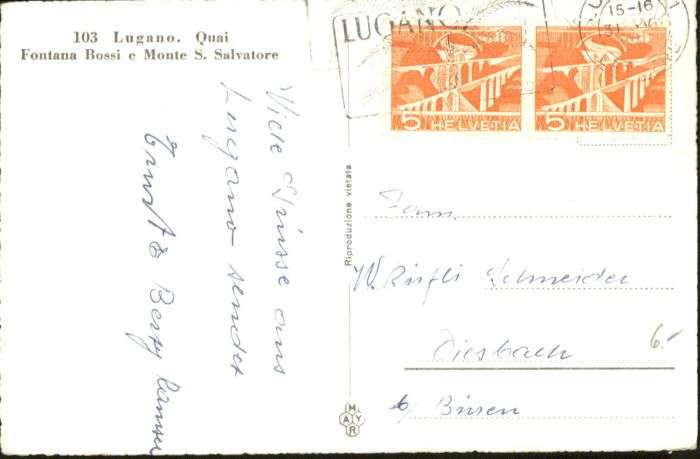 103 Lugano. Quai
Fontana Bossi e Monte S. Salvatore
Viele Grüsse aus
Lugano sendet
Ernst & Betty
Riproduzione vietata
MAYR
LUGANO
15-16
5 HELVETIA
5 HELVETIA
Fam.
W. Schneider
Diesbach
b/ Büren
6.-